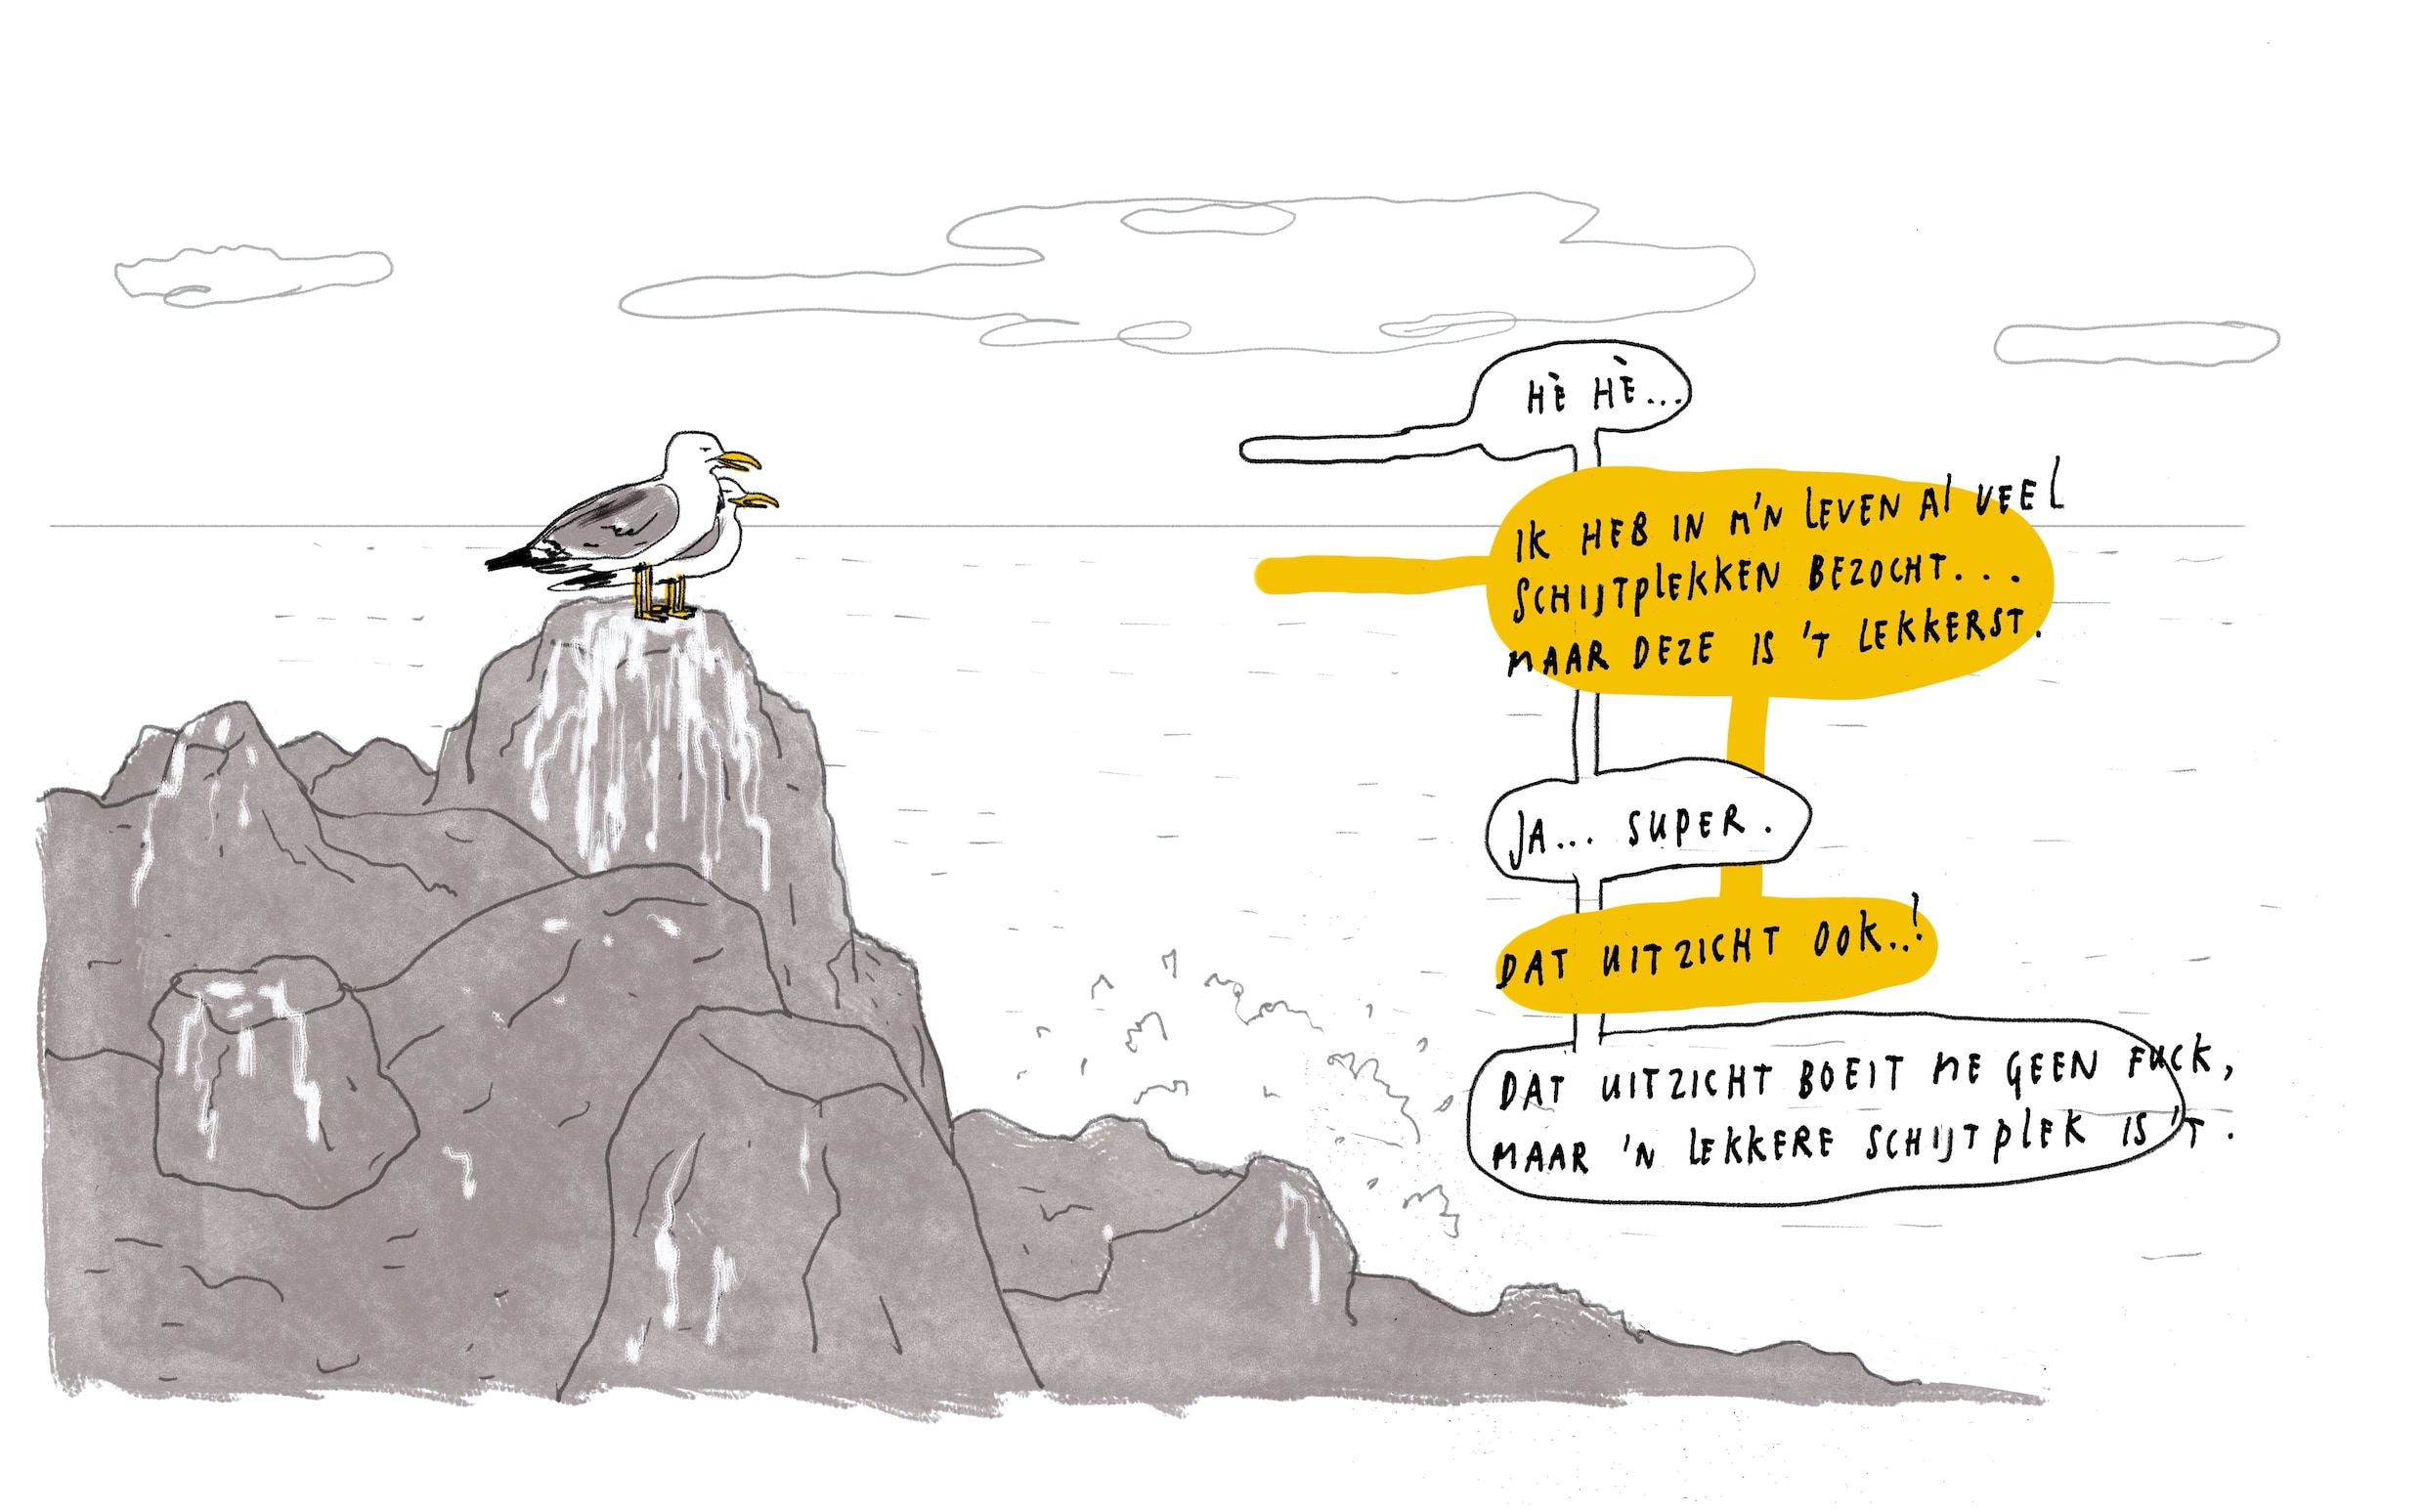 HÈ HÈ...
IK HEB IN M'N LEVEN Al VEEl
SCHIJTPlEKKEN BEZOCHT...
MAAR DEZE IS 'T LEKKERST.
JA... SUPER.
DAT UITZICHT OOK..!
DAT UITZICHT BOEIT ME GEEN FUCK,
MAAR 'N LEKKERE SCHIJTPlEK IS 'T.